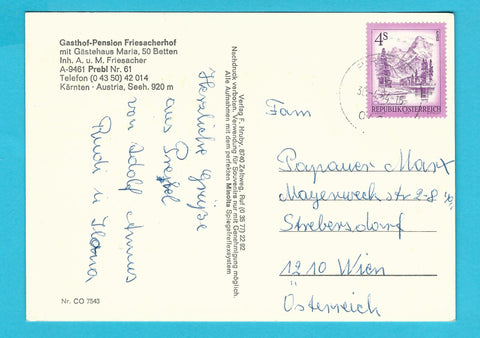 Gasthof-Pension Friesacherhof
mit Gästehaus Maria, 50 Betten
Inh. A. u. M. Friesacher
A-9461 Prebl Nr. 61
Telefon (0 43 50) 42 014
Kärnten · Austria, Seeh. 920 m
Herzliche Grüße
aus Prebl
von Adolf
Rudi u.
Nr. CO 7543
Verlag F. Hruby, 8740 Zeltweg, Ruf (0 35 77) 22 62
Alle Aufnahmen mit dem perfekten Minolta Spiegelreflexsystem
Nachdruck verboten. Verwendung für Souvenirs nur mit Genehmigung möglich.
4S
REPUBLIK ÖSTERREICH
Fam
Marx
Strebersdorf
1210 Wien
Österreich